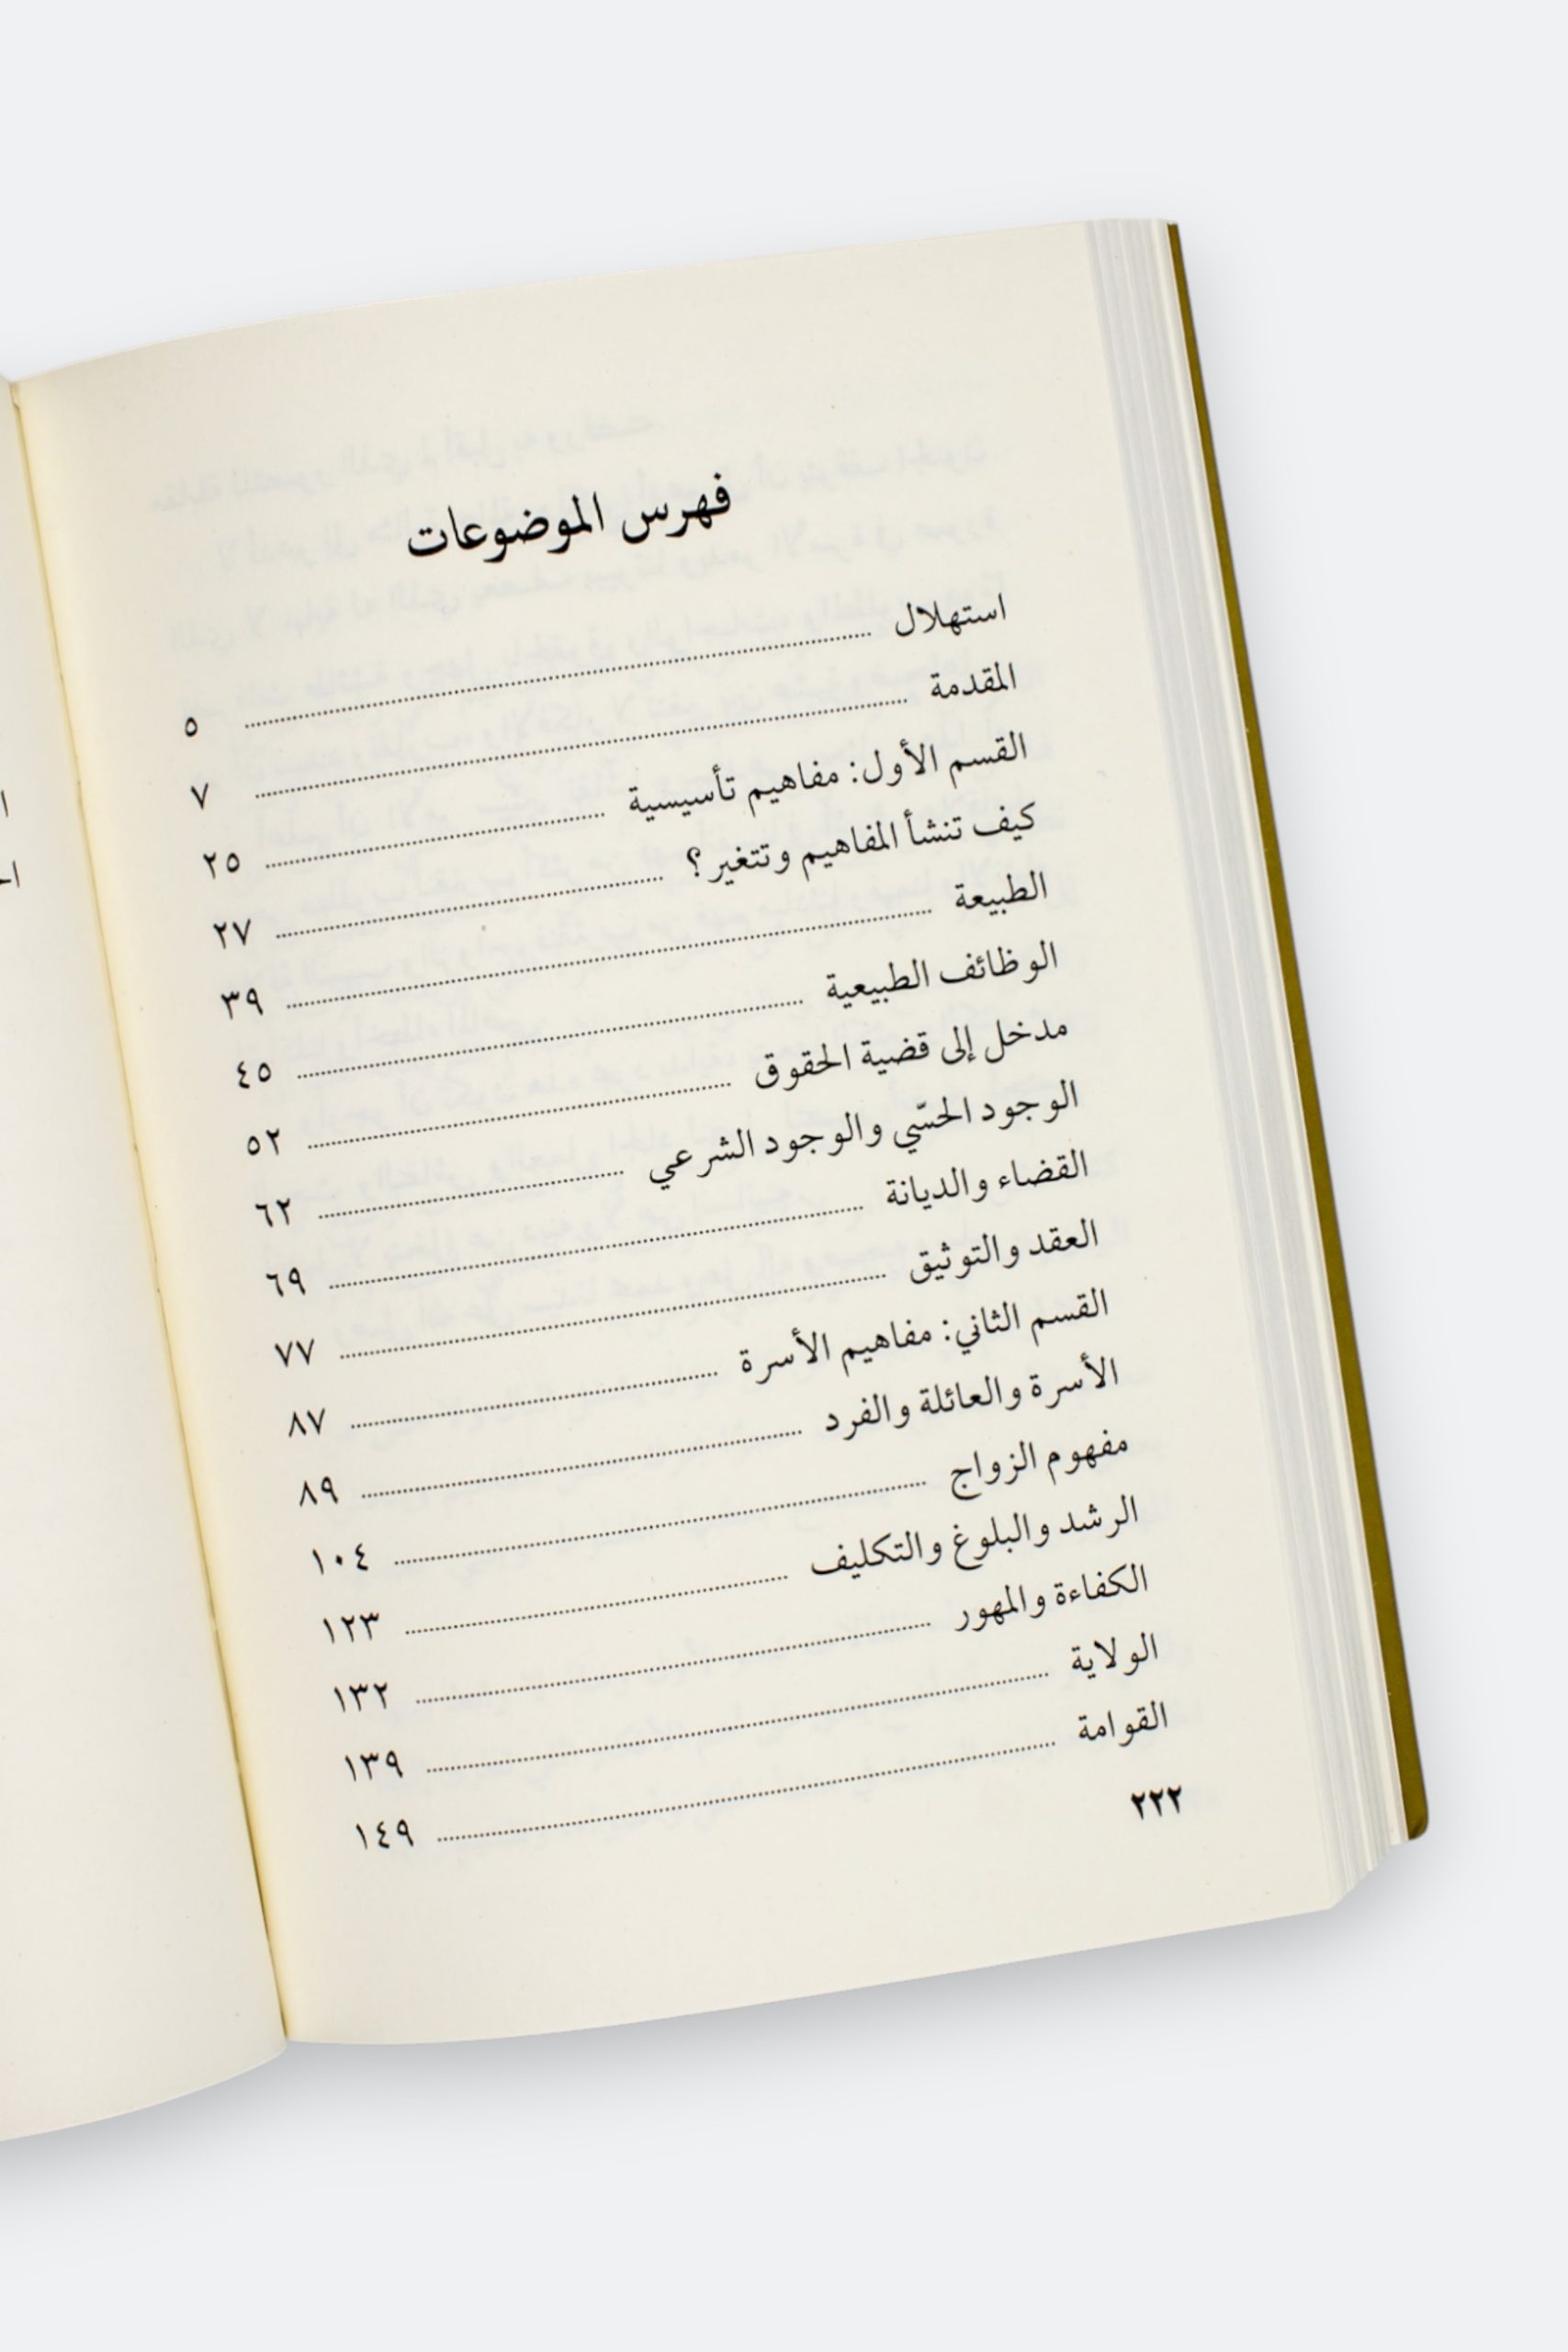 فهرس الموضوعات
استهلال ........ ٥
المقدمة ........ ٧
القسم الأول: مفاهيم تأسيسية ........ ٢٥
كيف تنشأ المفاهيم وتتغير؟ ........ ٢٧
الطبيعة ........ ٣٩
الوظائف الطبيعية ........ ٤٥
مدخل إلى قضية الحقوق ........ ٥٢
الوجود الحسّي والوجود الشرعي ........ ٦٢
القضاء والديانة ........ ٦٩
العقد والتوثيق ........ ٧٧
القسم الثاني: مفاهيم الأسرة ........ ٨٧
الأسرة والعائلة والفرد ........ ٨٩
مفهوم الزواج ........ ١٠٤
الرشد والبلوغ والتكليف ........ ١٢٣
الكفاءة والمهور ........ ١٣٢
الولاية ........ ١٣٩
القوامة ........ ١٤٩
٢٢٢